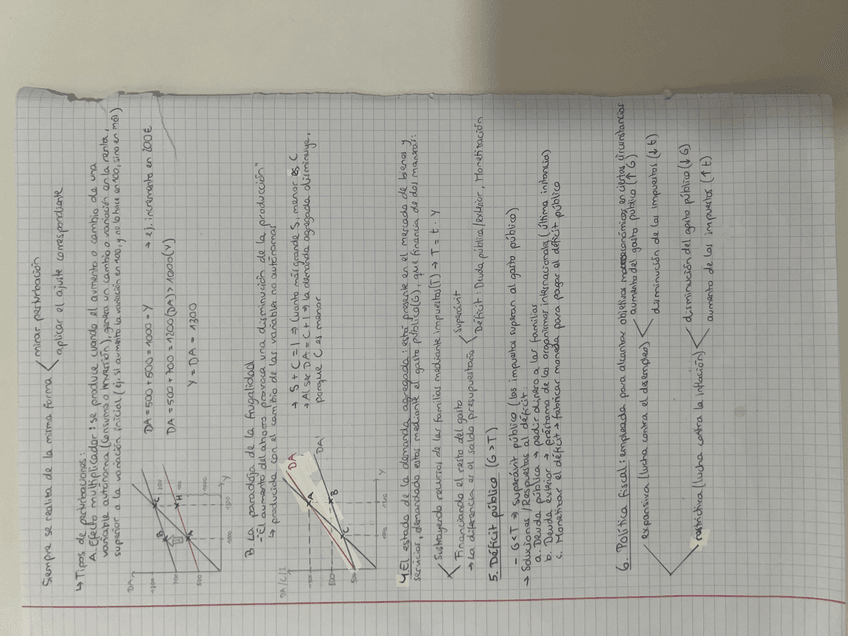 Siempre se realiza de la misma forma < mirar perturbación
aplicar el ajuste correspondiente
↳ Tipos de perturbaciones:
A. Efecto multiplicador: se produce cuando el aumento o cambio de una
variable autónoma (consumo o inversión), genera un cambio o variación en la renta,
superior a la variación inicial (ej. si aumento la variación en 100, y no lo hace en 100, sino en más)
DA
1200
700
500
DA = 500 + 500 = 1000 = Y → ej. incremento en 200€
DA = 500 + 700 = 1200 (DA) > 1000 (Y)
Y = DA = 1200
B. La paradoja de la frugalidad
- "El aumento del ahorro provoca una disminución de la producción"
↳ producida con el cambio de las variables no autónomas
DA
DA'
A
B
C
500
Y
→ S + C = 1 ⇒ Cuanto más grande S, menor es C
→ Al ser DA = C + I ⇒ la demanda agregada disminuye,
porque C es menor
4. El estado de la demanda agregada: está presente en el mercado de bienes y
servicios, demandado estos mediante el gasto público (G), que financia de dos maneras:
Sustrayendo recursos de las familias mediante impuestos (T) → T = t · Y
Financiando el resto del gasto
↳ La diferencia es el saldo presupuestario < Superávit
Déficit: Deuda pública/exterior, Monetización
5. Déficit público (G > T)
- G < T ⇒ Superávit público (los impuestos superan al gasto público)
→ Soluciones / Respuestas al déficit:
a. Deuda pública → pedir dinero a las familias
b. Deuda exterior → préstamo de los organismos internacionales (última instancia)
c. Monetizar el déficit → fabricar moneda para pagar el déficit público
6. Política fiscal: empleada para alcanzar objetivos macroeconómicos en ciertas circunstancias
expansiva (lucha contra el desempleo) < aumento del gasto público (↑ G)
disminución de los impuestos (↓ t)
restrictiva (lucha contra la inflación) < disminución del gasto público (↓ G)
aumento de los impuestos (↑ t)